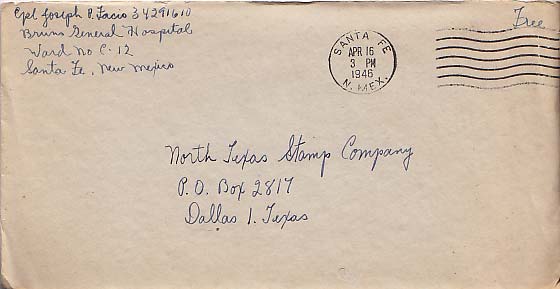 Cpl Joseph P. Tacio 34291610
Bruns General Hospital
Ward No C-12
Santa Fe, New Mexico
Free
SANTA FE
APR 16
3 PM
1946
N. MEX.
North Texas Stamp Company
P.O. Box 2817
Dallas 1, Texas